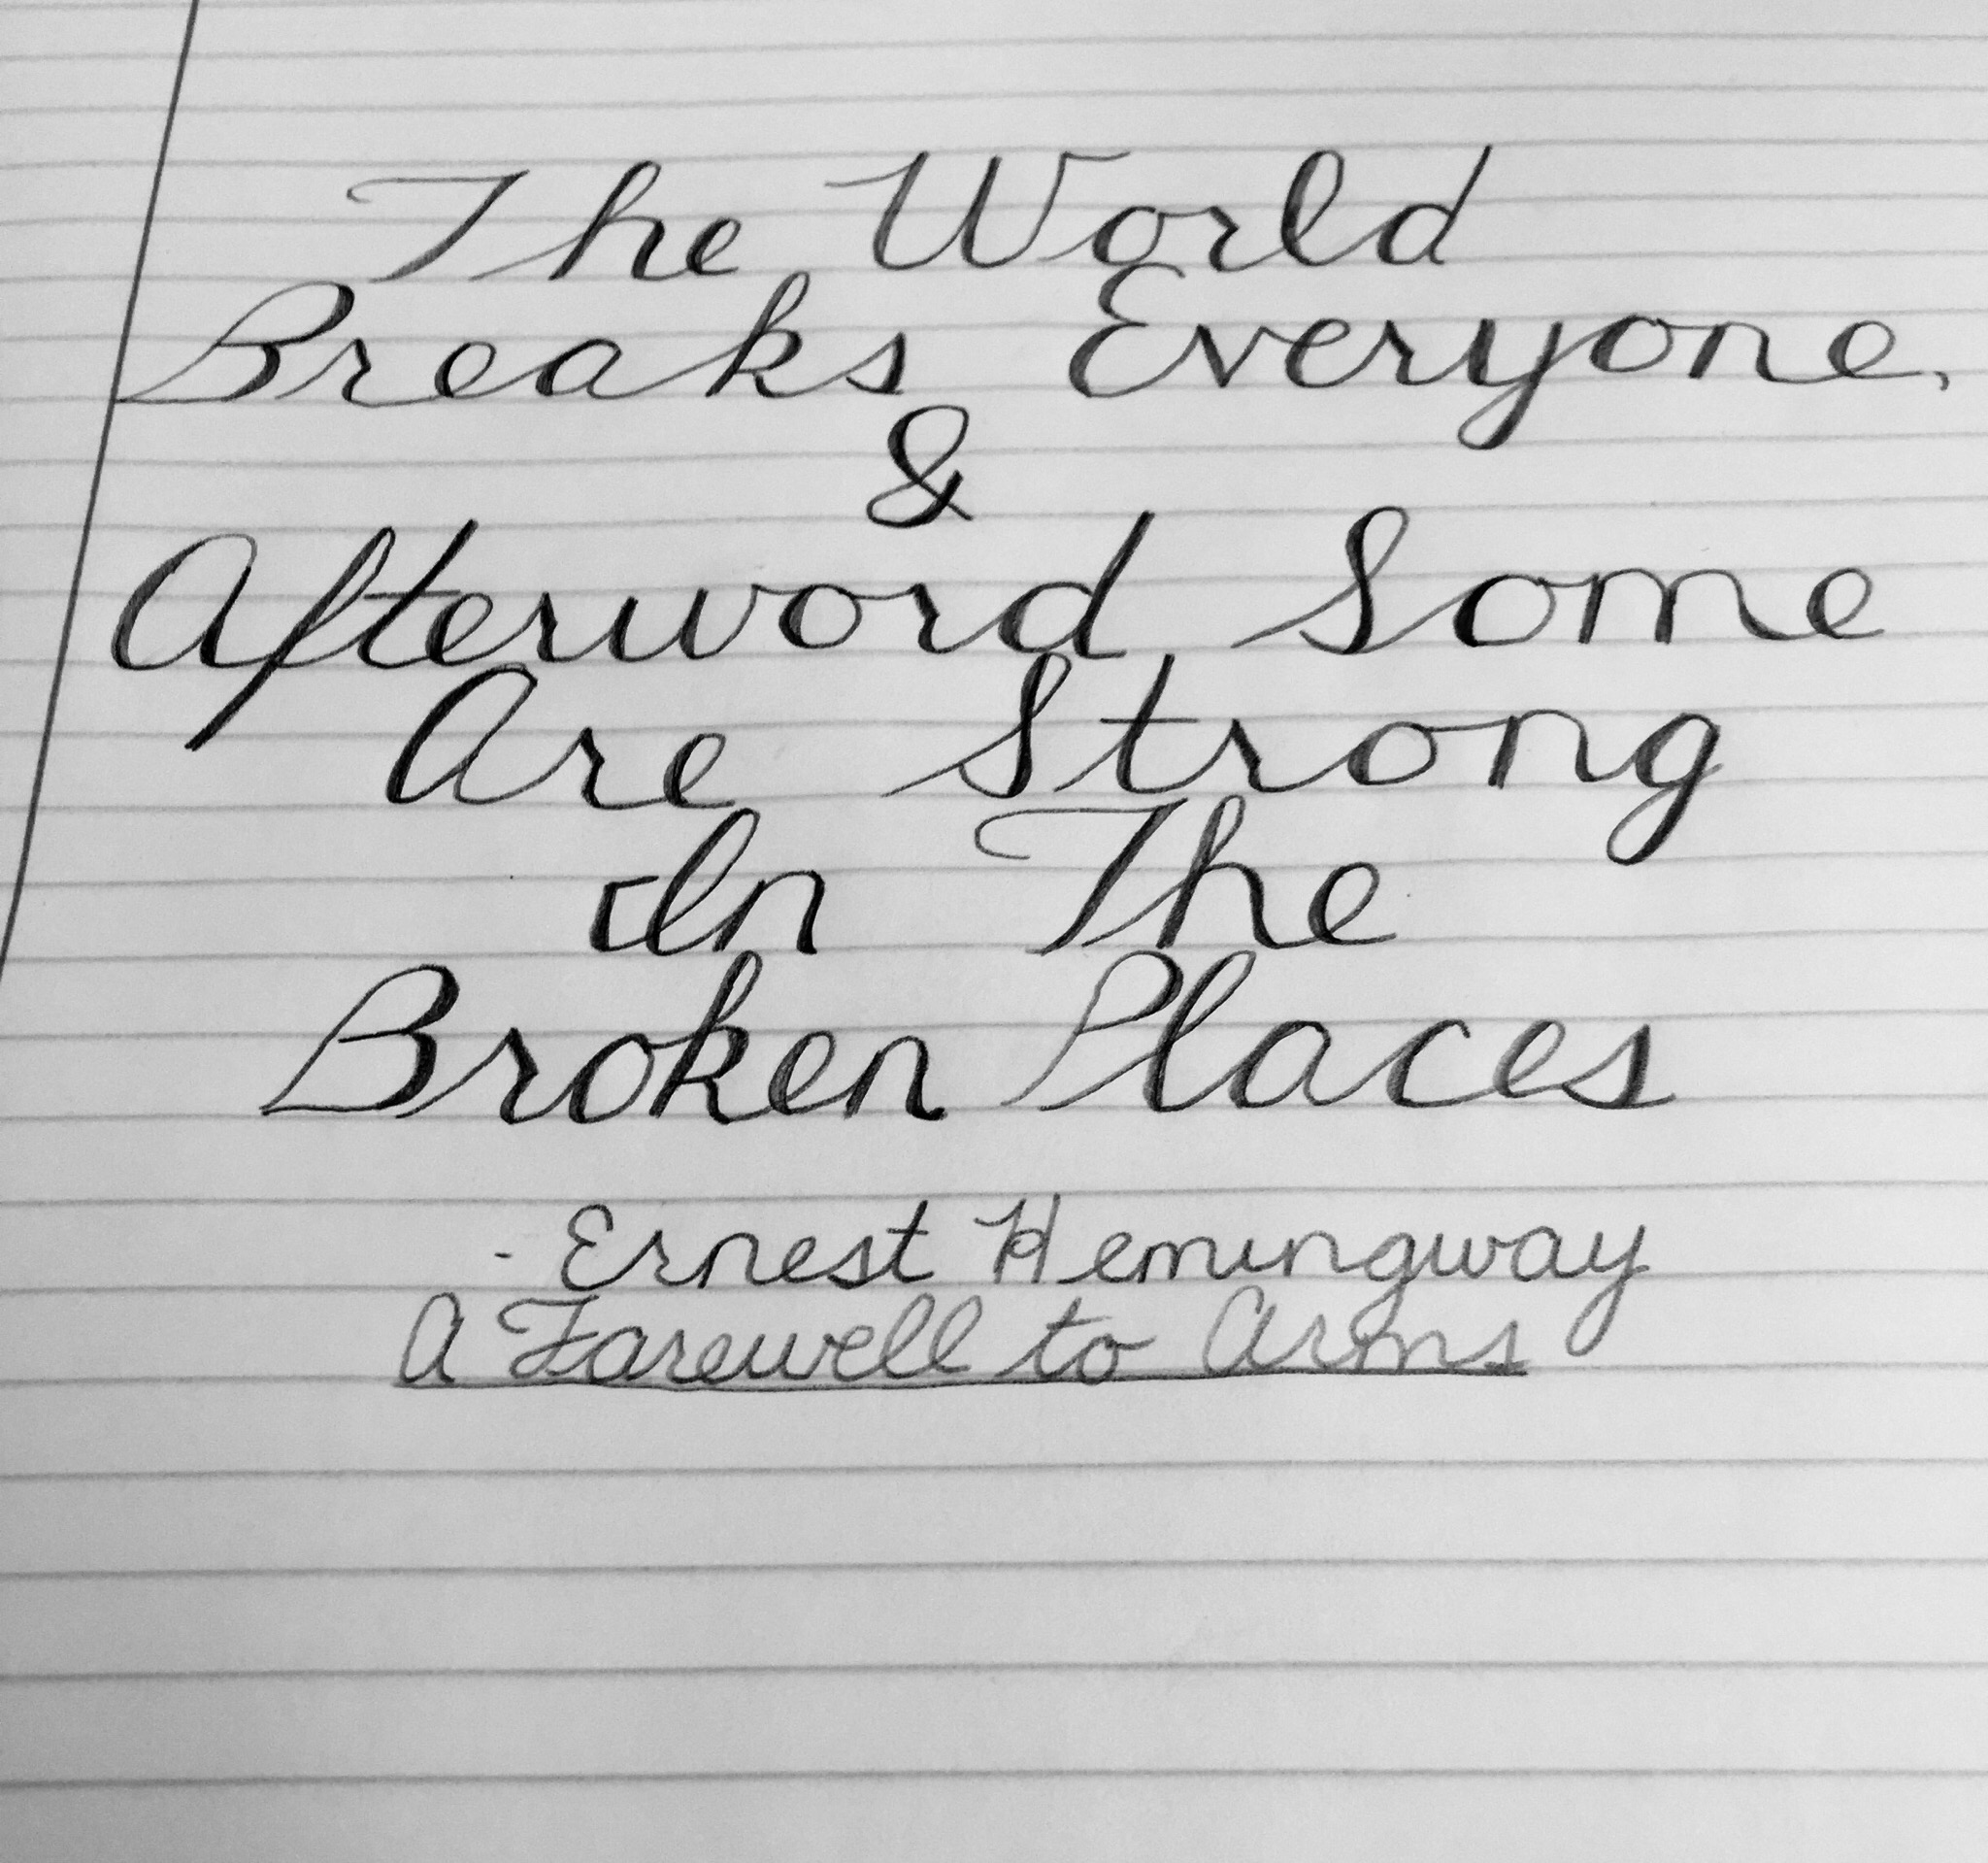 The World
Breaks Everyone,
&
Afterword Some
Are Strong
In The
Broken Places
- Ernest Hemingway
A Farewell to Arms